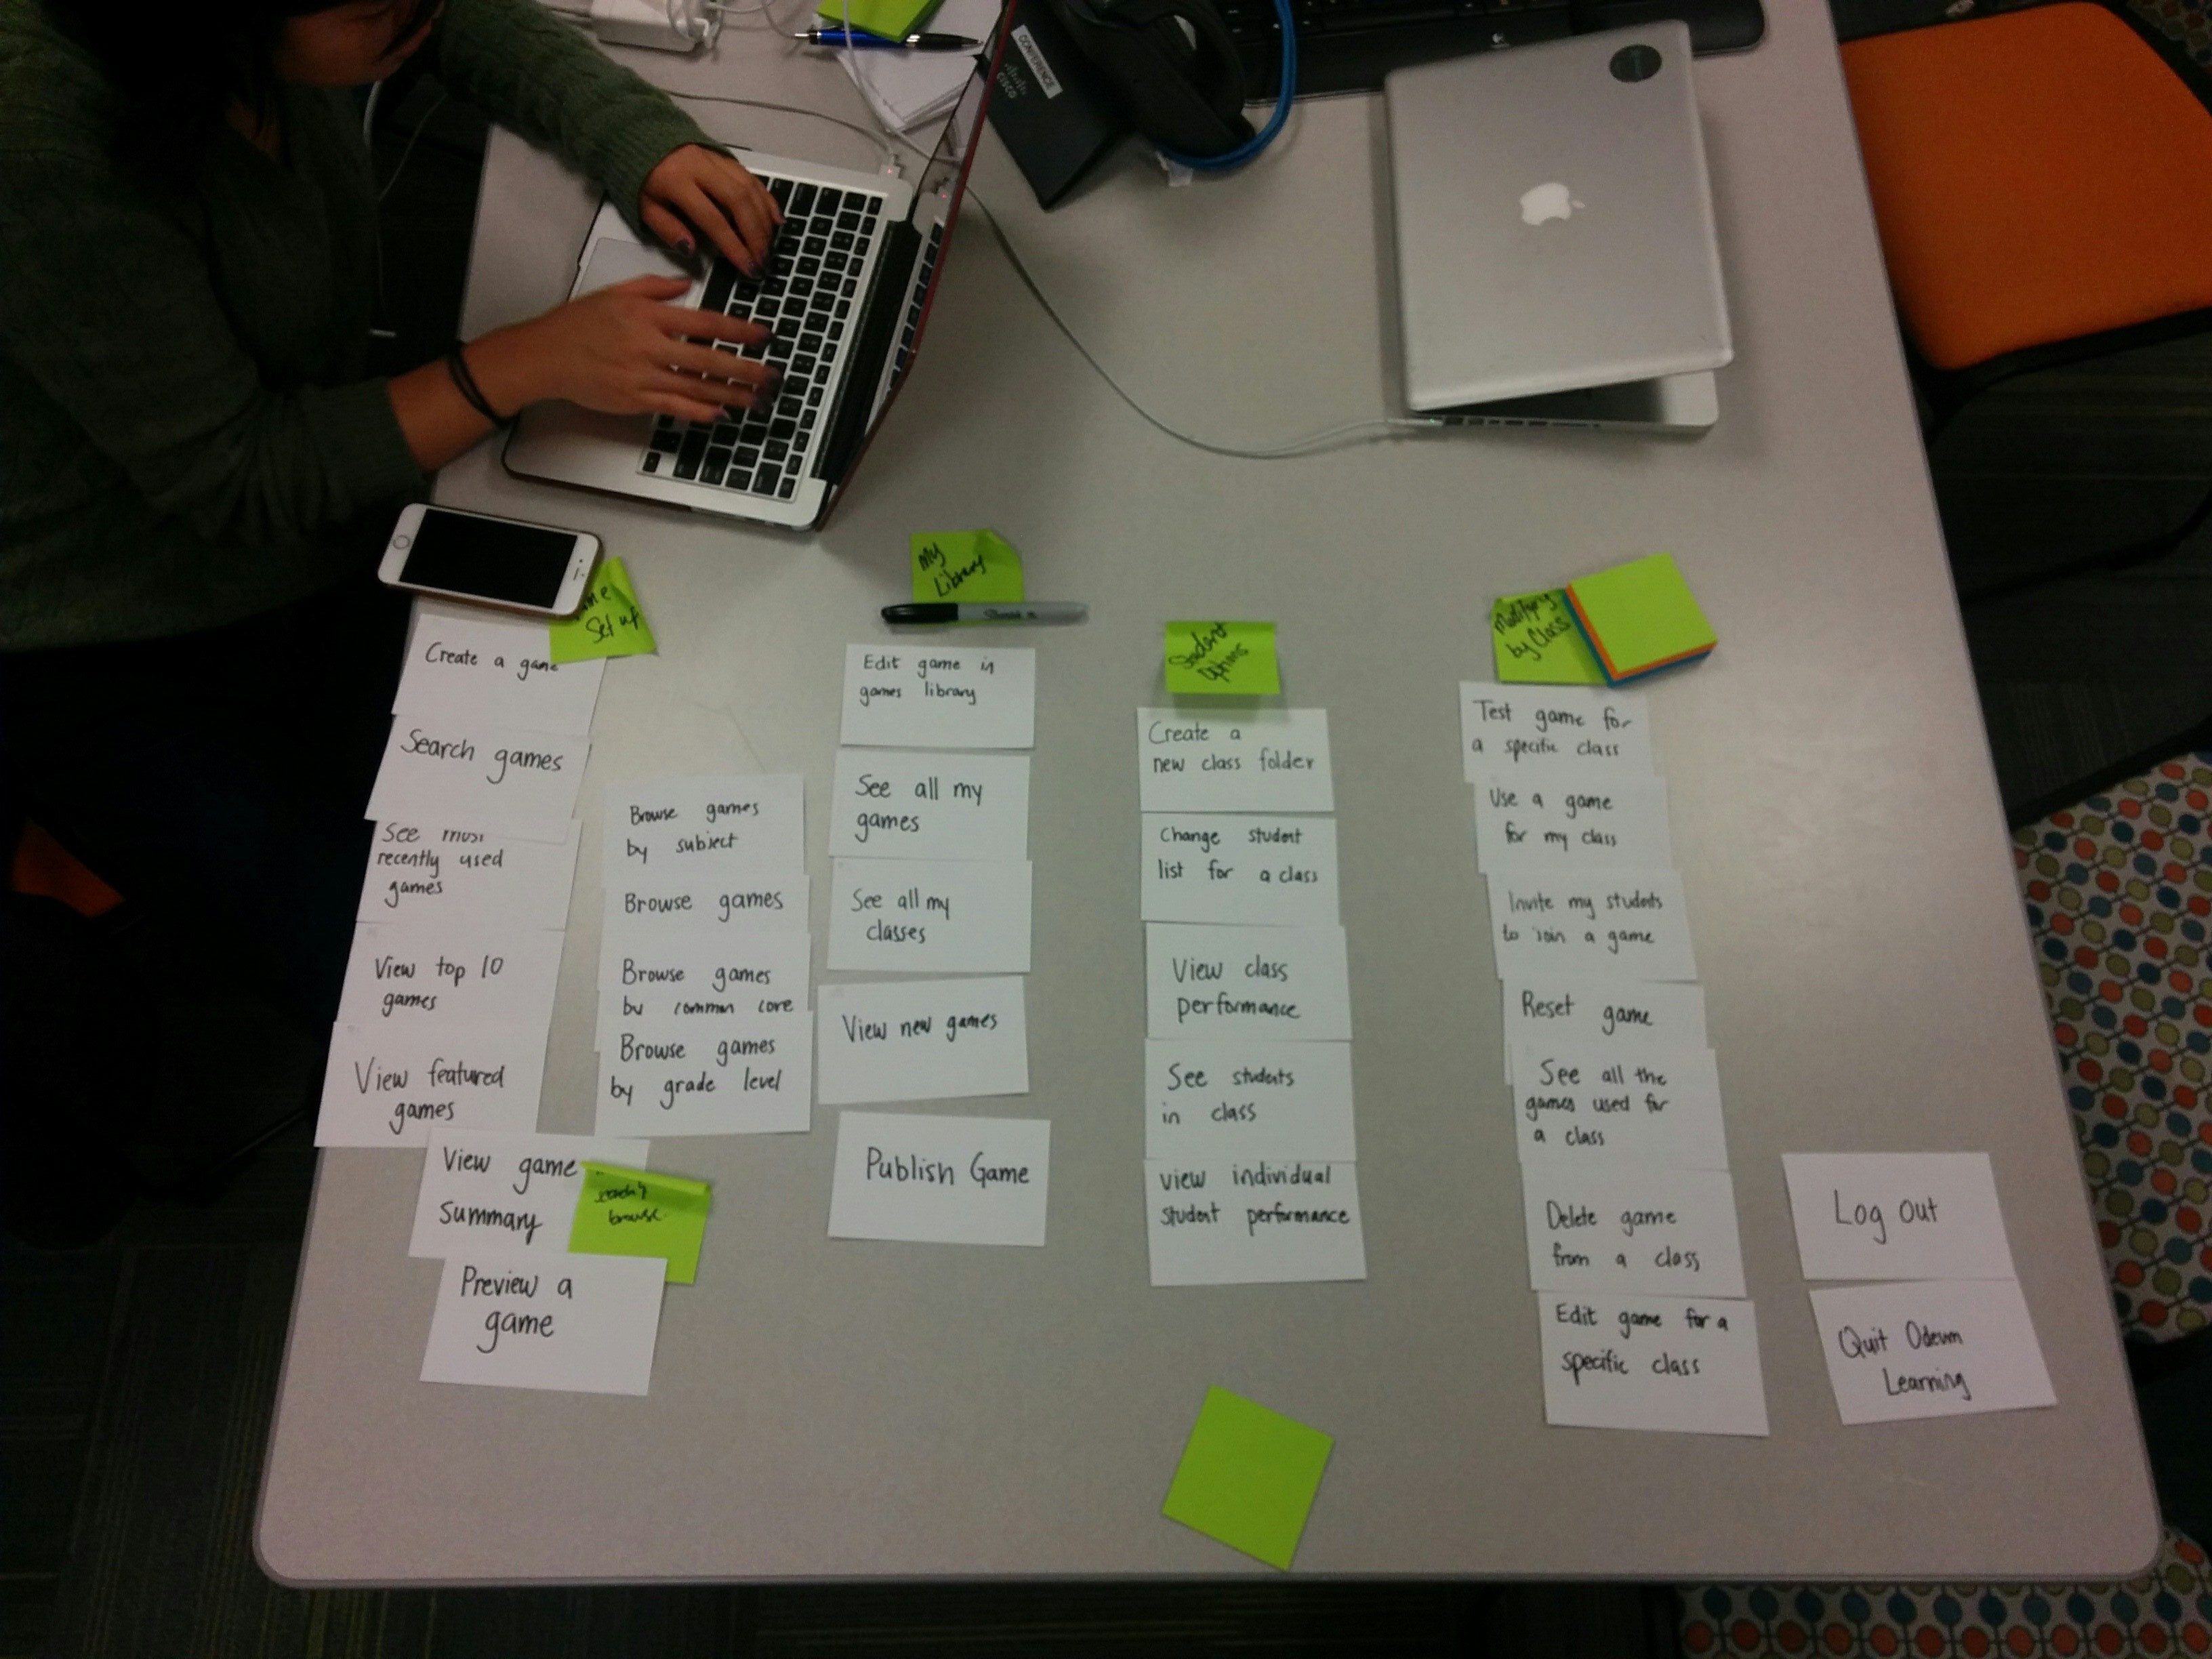 CONFERENCE
cisco
Set up
Create a game
Search games
See most
recently used
games
View top 10
games
View featured
games
View game
summary
Preview a
game
Browse games
by subject
Browse games
Browse games
by common core
Browse games
by grade level
browse
My
Library
Sharpie
Edit game in
games library
See all my
games
See all my
classes
View new games
Publish Game
Student
Options
Create a
new class folder
Change student
list for a class
View class
performance
See students
in class
View individual
student performance
Modifying
by Class
Test game for
a specific class
Use a game
for my class
Invite my students
to join a game
Reset game
See all the
games used for
a class
Delete game
from a class
Edit game for a
specific class
Log out
Quit Odeum
Learning